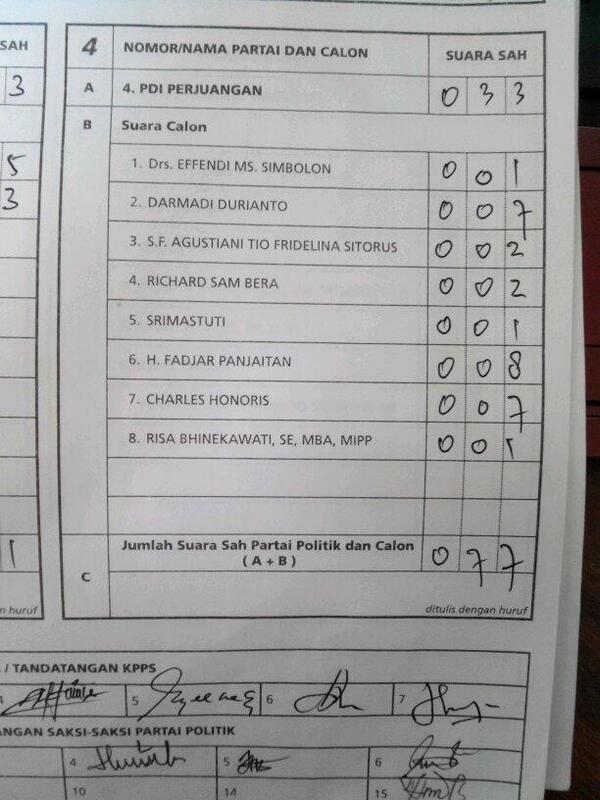 SAH
3
5
3
1
n huruf
4 NOMOR/NAMA PARTAI DAN CALON SUARA SAH
A 4. PDI PERJUANGAN 0 3 3
B Suara Calon
1. Drs. EFFENDI MS. SIMBOLON 0 0 1
2. DARMADI DURIANTO 0 0 7
3. S.F. AGUSTIANI TIO FRIDELINA SITORUS 0 0 2
4. RICHARD SAM BERA 0 0 2
5. SRIMASTUTI 0 0 1
6. H. FADJAR PANJAITAN 0 0 8
7. CHARLES HONORIS 0 0 7
8. RISA BHINEKAWATI, SE, MBA, MIPP 0 0 1
C Jumlah Suara Sah Partai Politik dan Calon
( A + B ) 0 7 7
ditulis dengan huruf
/ TANDATANGAN KPPS
4 5 6 7
NGAN SAKSI-SAKSI PARTAI POLITIK
4 5 6
10 14 15